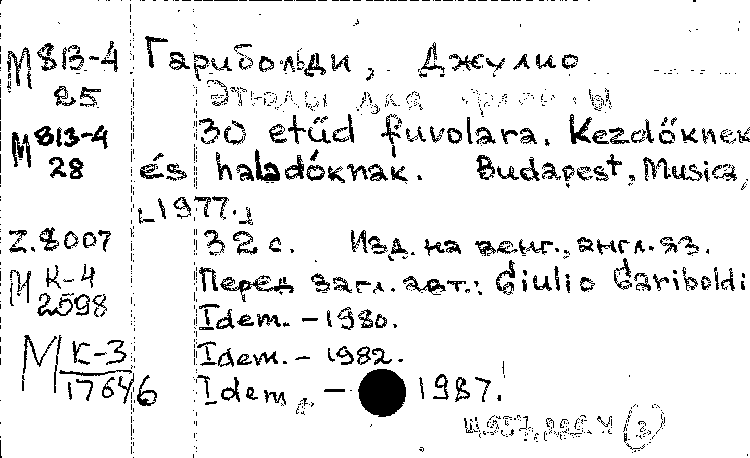 М 813-4 25 Гарибольди, Джулио
Этюды для флейты
М 813-4 28 30 etűd fuvolára. Kezdőknek
és haladóknak. Budapest, Musica,
[1977.]
Z.8007 32 с. Изд. на венг., англ. яз.
М К-4 2598 Перед загл. авт.: Giulio Gariboldi
Idem. - 1980.
М К-3 17646 Idem. - 1982.
Idem. - 1987.
(3)